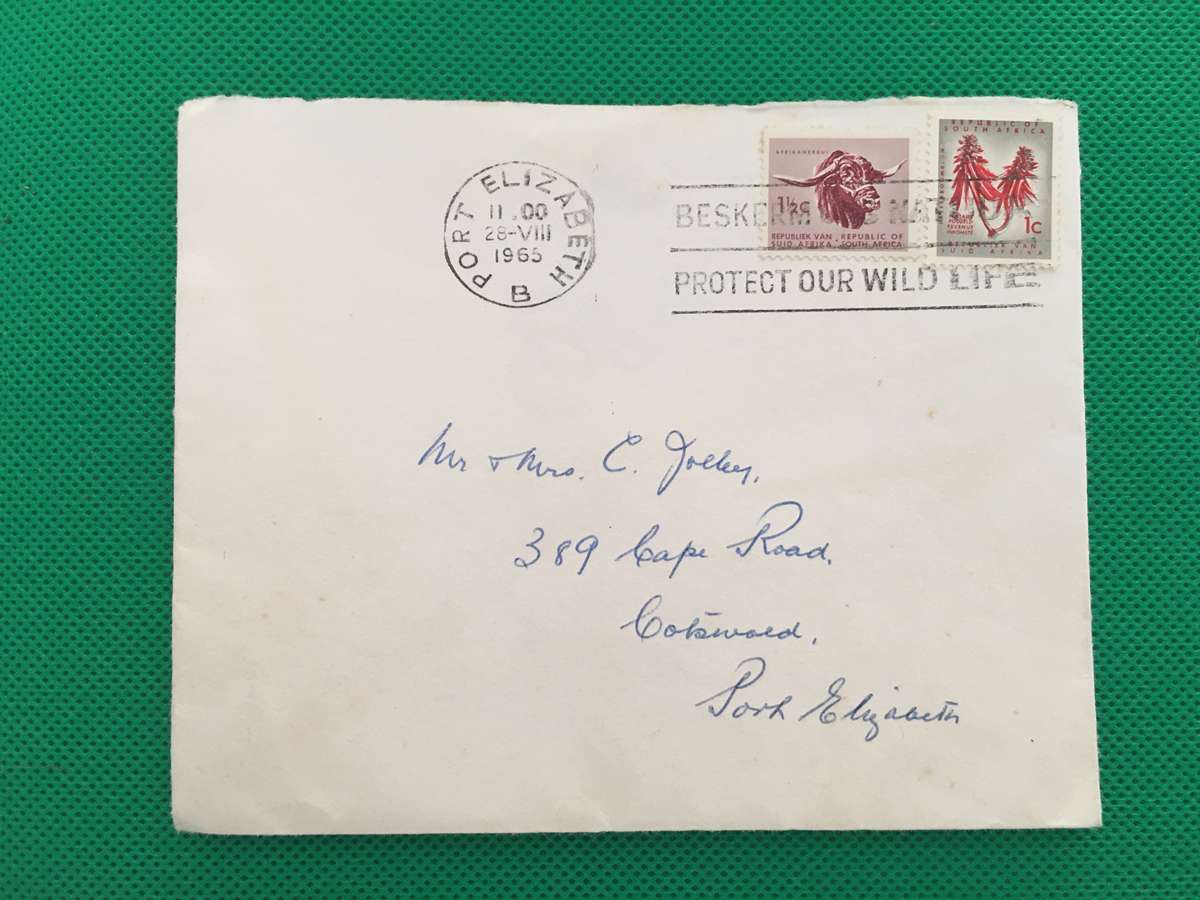 PORT ELIZABETH
11.00
28-VIII
1965
B
AFRIKANERBUL
1½c
REPUBLIEK VAN REPUBLIC OF
SUID AFRIKA SOUTH AFRICA
REPUBLIC OF
SOUTH AFRICA
POSSEEL
REVENUE
INKOMSTE
1c
REPUBLIEK VAN
SUID AFRIKA
BESKERM NAT
PROTECT OUR WILD LIFE
Mr & Mrs. C. Jolley,
389 Cape Road,
Cotswold,
Port Elizabeth